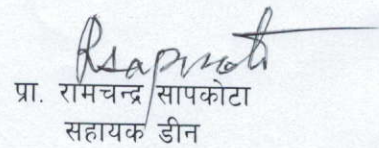 Rsapkota
प्रा. रामचन्द्र सापकोटा
सहायक डीन